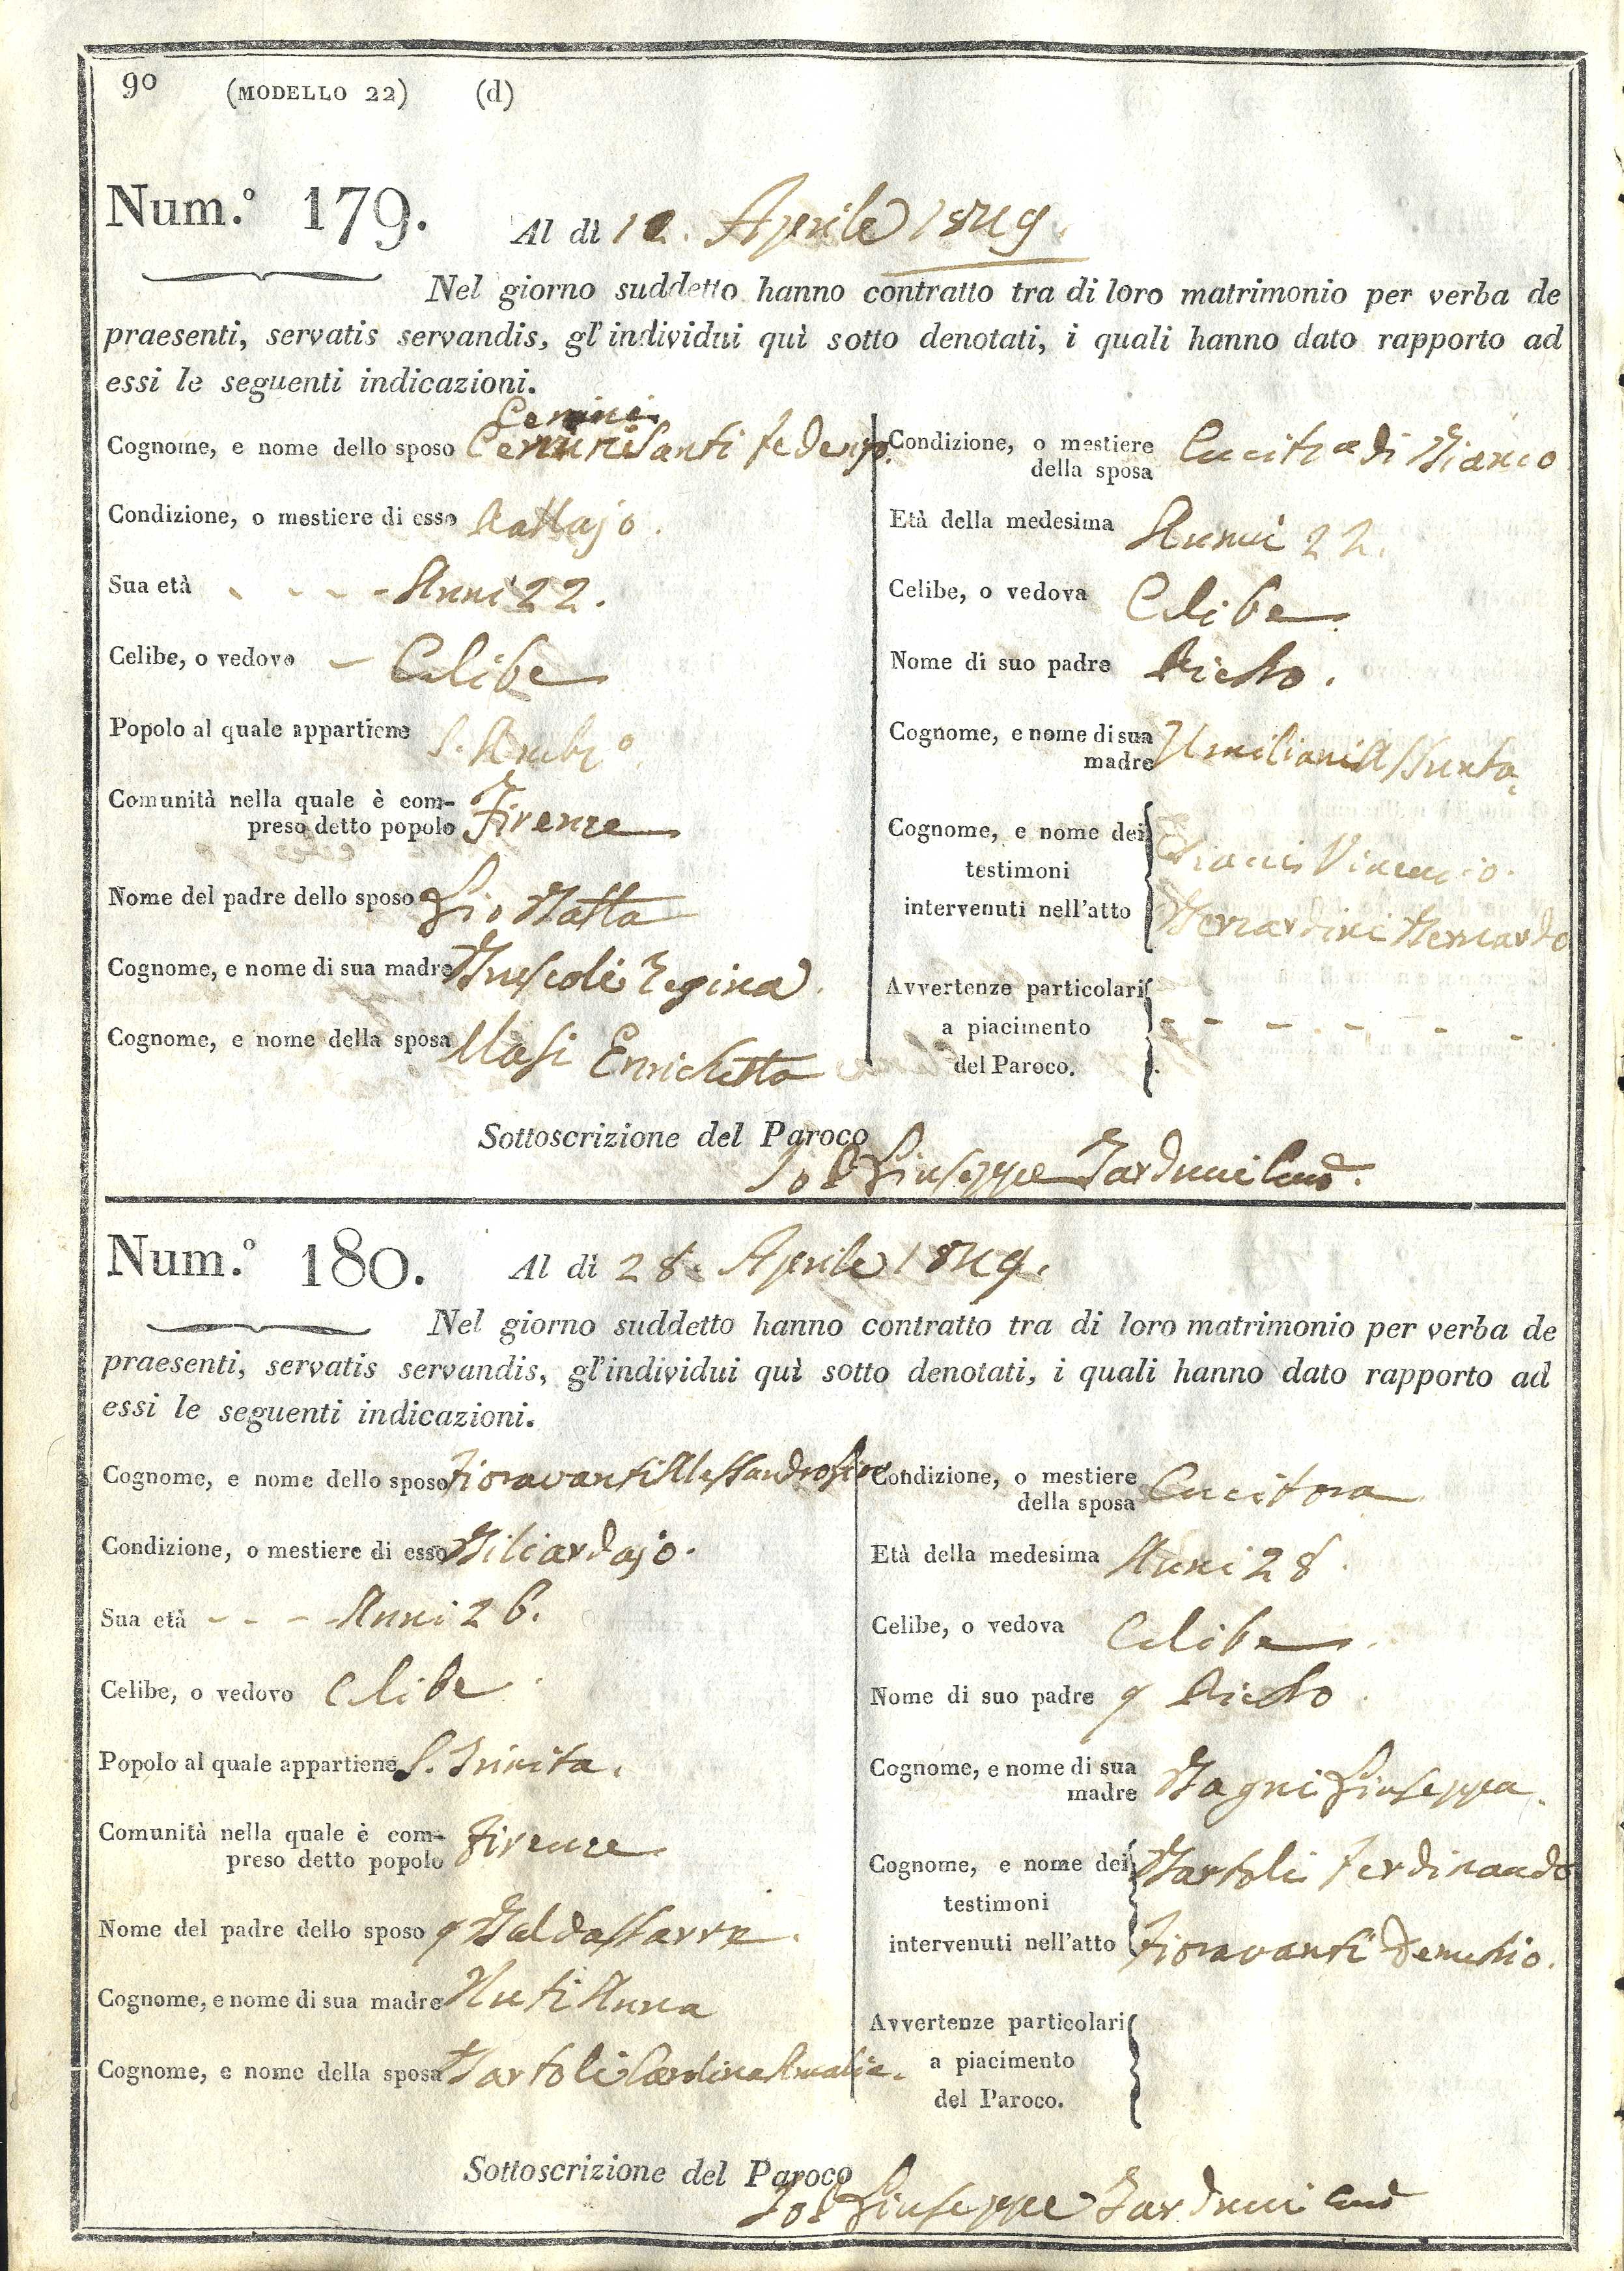 90 (MODELLO 22) (d)
Num.º 179. Al dì 12. Aprile 1849.
Nel giorno suddetto hanno contratto tra di loro matrimonio per verba de
praesenti, servatis servandis, gl'individui quì sotto denotati, i quali hanno dato rapporto ad
essi le seguenti indicazioni.
Cemini
Cognome, e nome dello sposo Santi Federigo.
Condizione, o mestiere di esso
Sua età - - - - Anni 22.
Celibe, o vedovo - Celibe
Popolo al quale appartiene S. Ambº.
Comunità nella quale è com-
preso detto popolo Firenze
Nome del padre dello sposo Gio Batta
Cognome, e nome di sua madre Bruscoli Regina.
Cognome, e nome della sposa Masi Enrichetta
Condizione, o mestiere
della sposa di Bianco
Età della medesima Anni 22.
Celibe, o vedova Celibe
Nome di suo padre
Cognome, e nome di sua
madre Umiliani Assunta
Cognome, e nome dei
testimoni Vincenzio.
intervenuti nell'atto Bernardini Bernardo
Avvertenze particolari
a piacimento - - - - - -
del Paroco.
Sottoscrizione del Paroco
Giuseppe Tarducci
Num.º 180. Al dì 28. Aprile 1849.
Nel giorno suddetto hanno contratto tra di loro matrimonio per verba de
praesenti, servatis servandis, gl'individui quì sotto denotati, i quali hanno dato rapporto ad
essi le seguenti indicazioni.
Cognome, e nome dello sposo Fioravanti Alessandro
Condizione, o mestiere di esso Biliardajo.
Sua età - - - Anni 26.
Celibe, o vedovo Celibe
Popolo al quale appartiene S. Trinita.
Comunità nella quale è com-
preso detto popolo Firenze
Nome del padre dello sposo q Baldassarre.
Cognome, e nome di sua madre Nuti Anna
Cognome, e nome della sposa Bartoli Carolina Amalia.
Condizione, o mestiere
della sposa Cucitora
Età della medesima Anni 28.
Celibe, o vedova Celibe.
Nome di suo padre q
Cognome, e nome di sua
madre Bagni Giuseppa.
Cognome, e nome dei Bartoli Ferdinando
testimoni
intervenuti nell'atto Fioravanti
Avvertenze particolari
a piacimento
del Paroco.
Sottoscrizione del Paroco
Giuseppe Tarducci